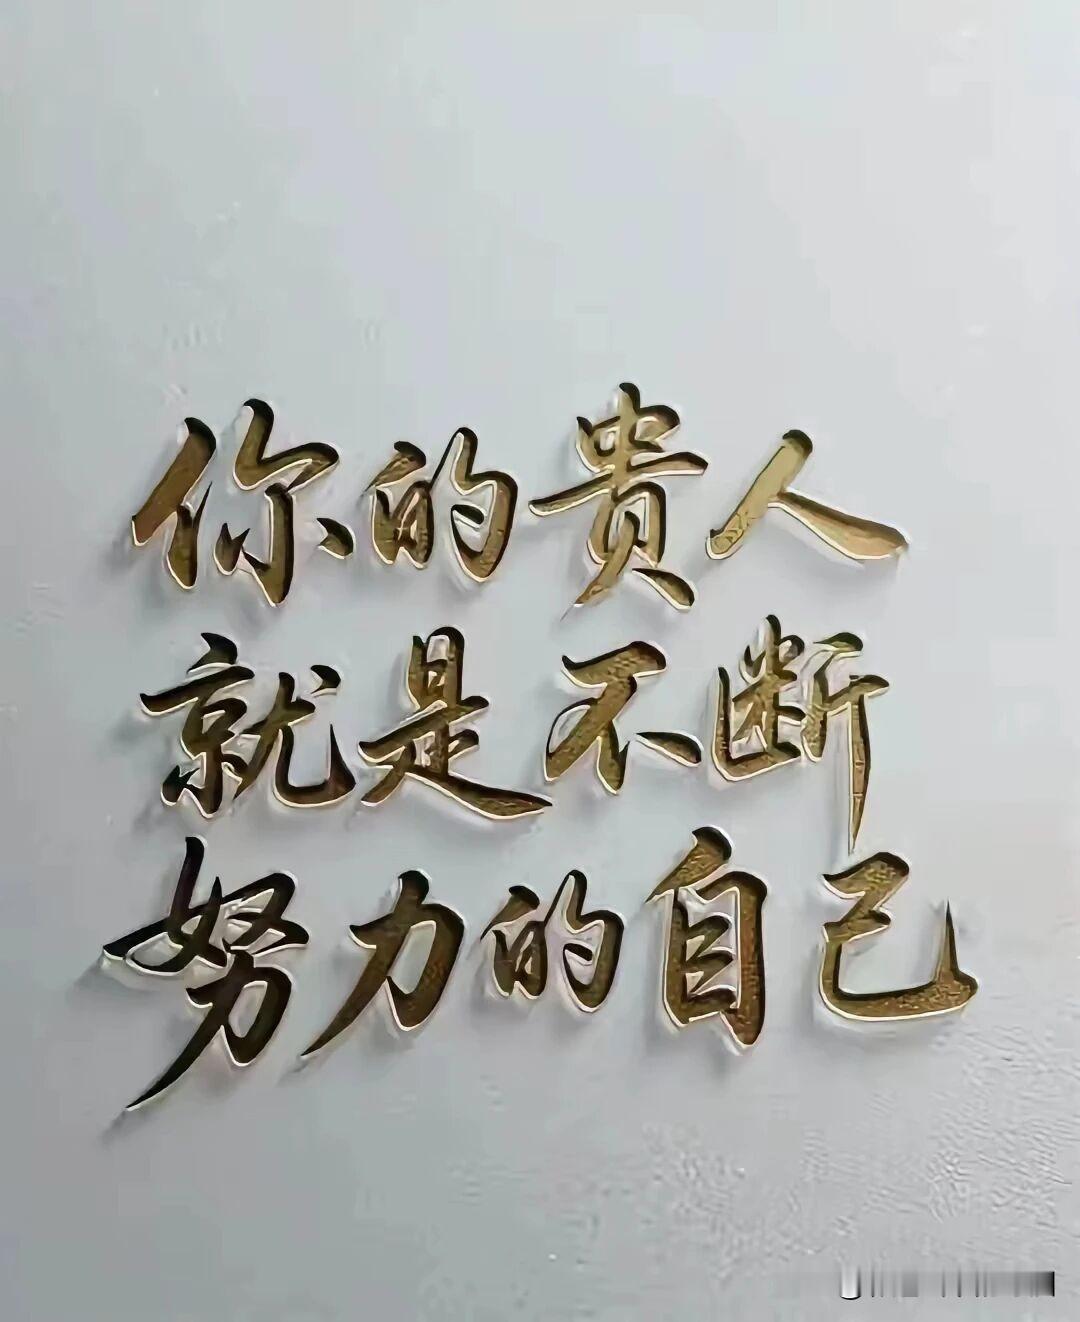 你的贵人
就是不断
努力的自己